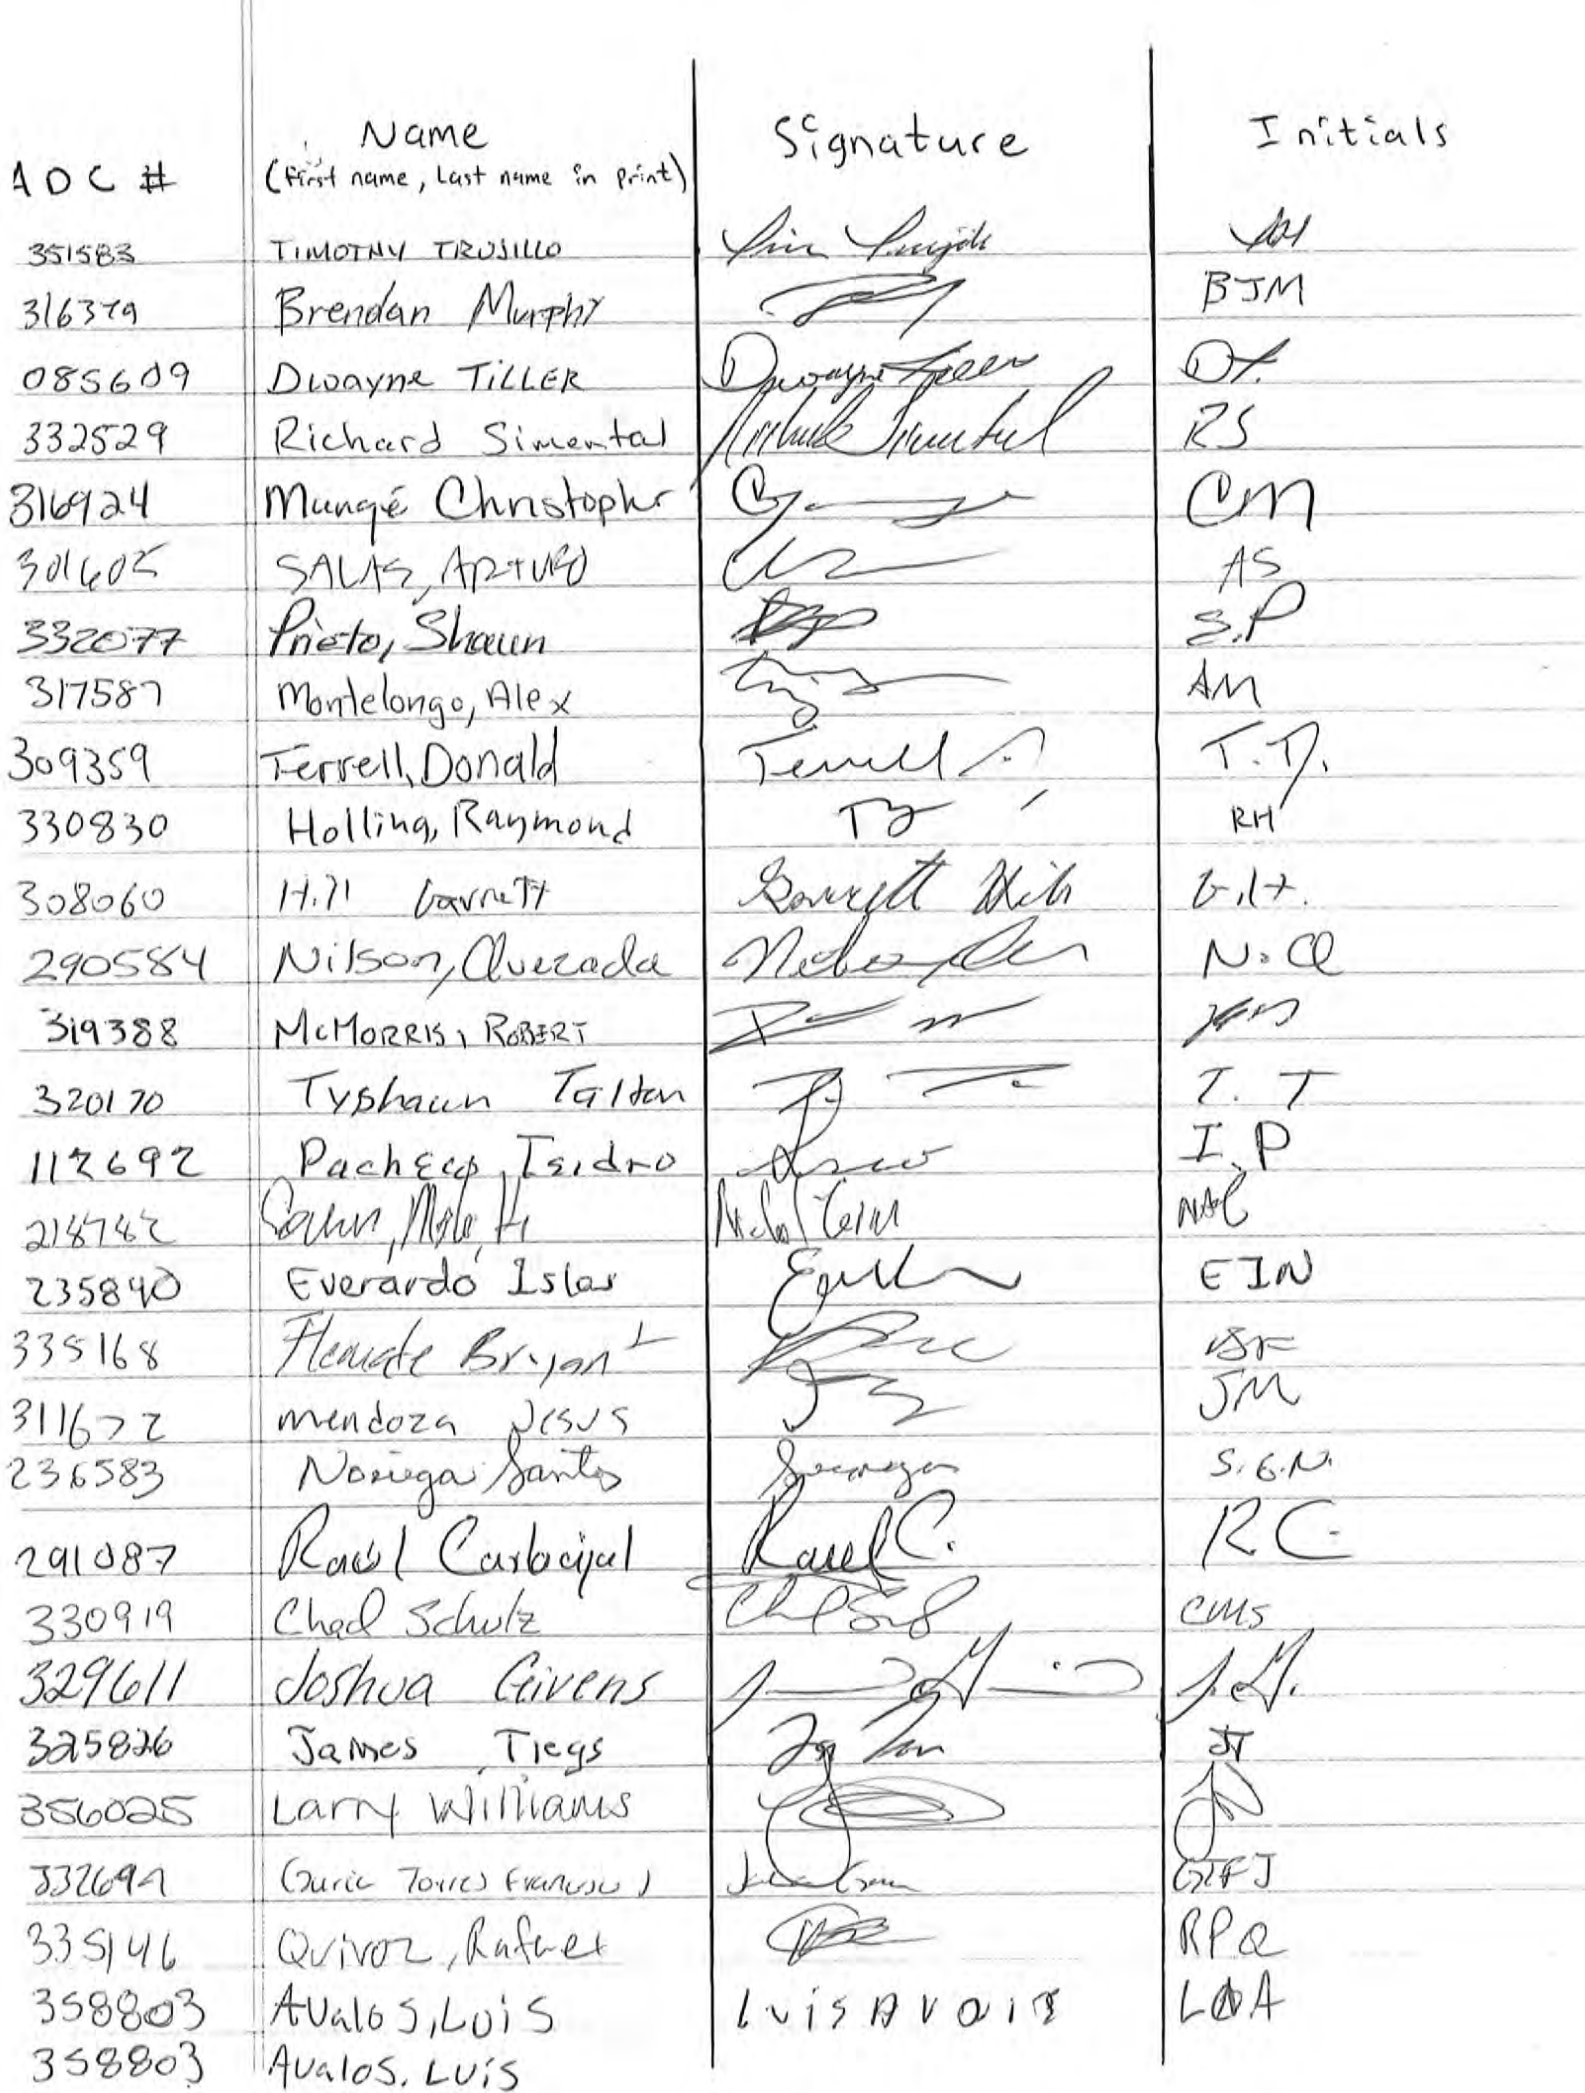 ADC # Name Signature Initials
(First name, Last name in print)
351583 TIMOTHY TRUJILLO
316379 Brendan Murphy BJM
085609 Dwayne TiLLER Dwayne DT.
332529 Richard Simental Richard Simental RS
316924 Mungé Christophr CM
301605 SALAS, ARTURO AS
332077 Prieto, Shaun S.P
317587 Montelongo, Alex AM
309359 Terrell, Donald Terrell T.D.
330830 Holling, Raymond RH
308060 Hill Garrett Garrett Hill G.H.
290584 Nilson, Quezada N.Q
319388 McMORRIS, ROBERT
320170 Tyshaun Talton T. T
112692 Pacheco, Isidro I.P
218782
235840 Everardo Islas EIN
335168 Bryant BF
311672 mendoza Jesus JM
236583 Noriega Santos S.G.N.
291087 Raúl Carbajal Raul C. RC
330919 Chad Schulz CMS
329611 Joshua Givens J.G.
325826 James Tiegs JT
356025 Larry Williams
332694 Torres GTFJ
335146 Quiroz, Rafael RPQ
358803 AvaloS, LUiS LUiS AVOIS LAA
358803 AvaloS. LUiS